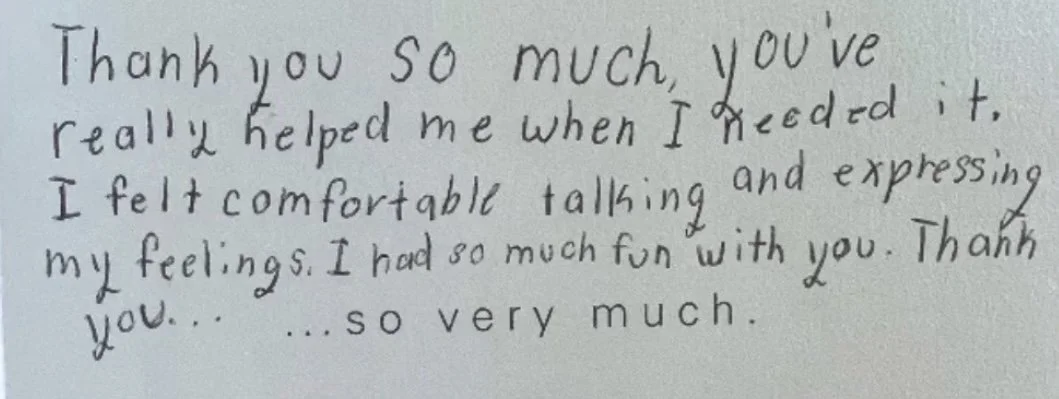 Thank you so much, you've
really helped me when I needed it.
I felt comfortable talking and expressing
my feelings. I had so much fun with you. Thank
you... ...so very much.